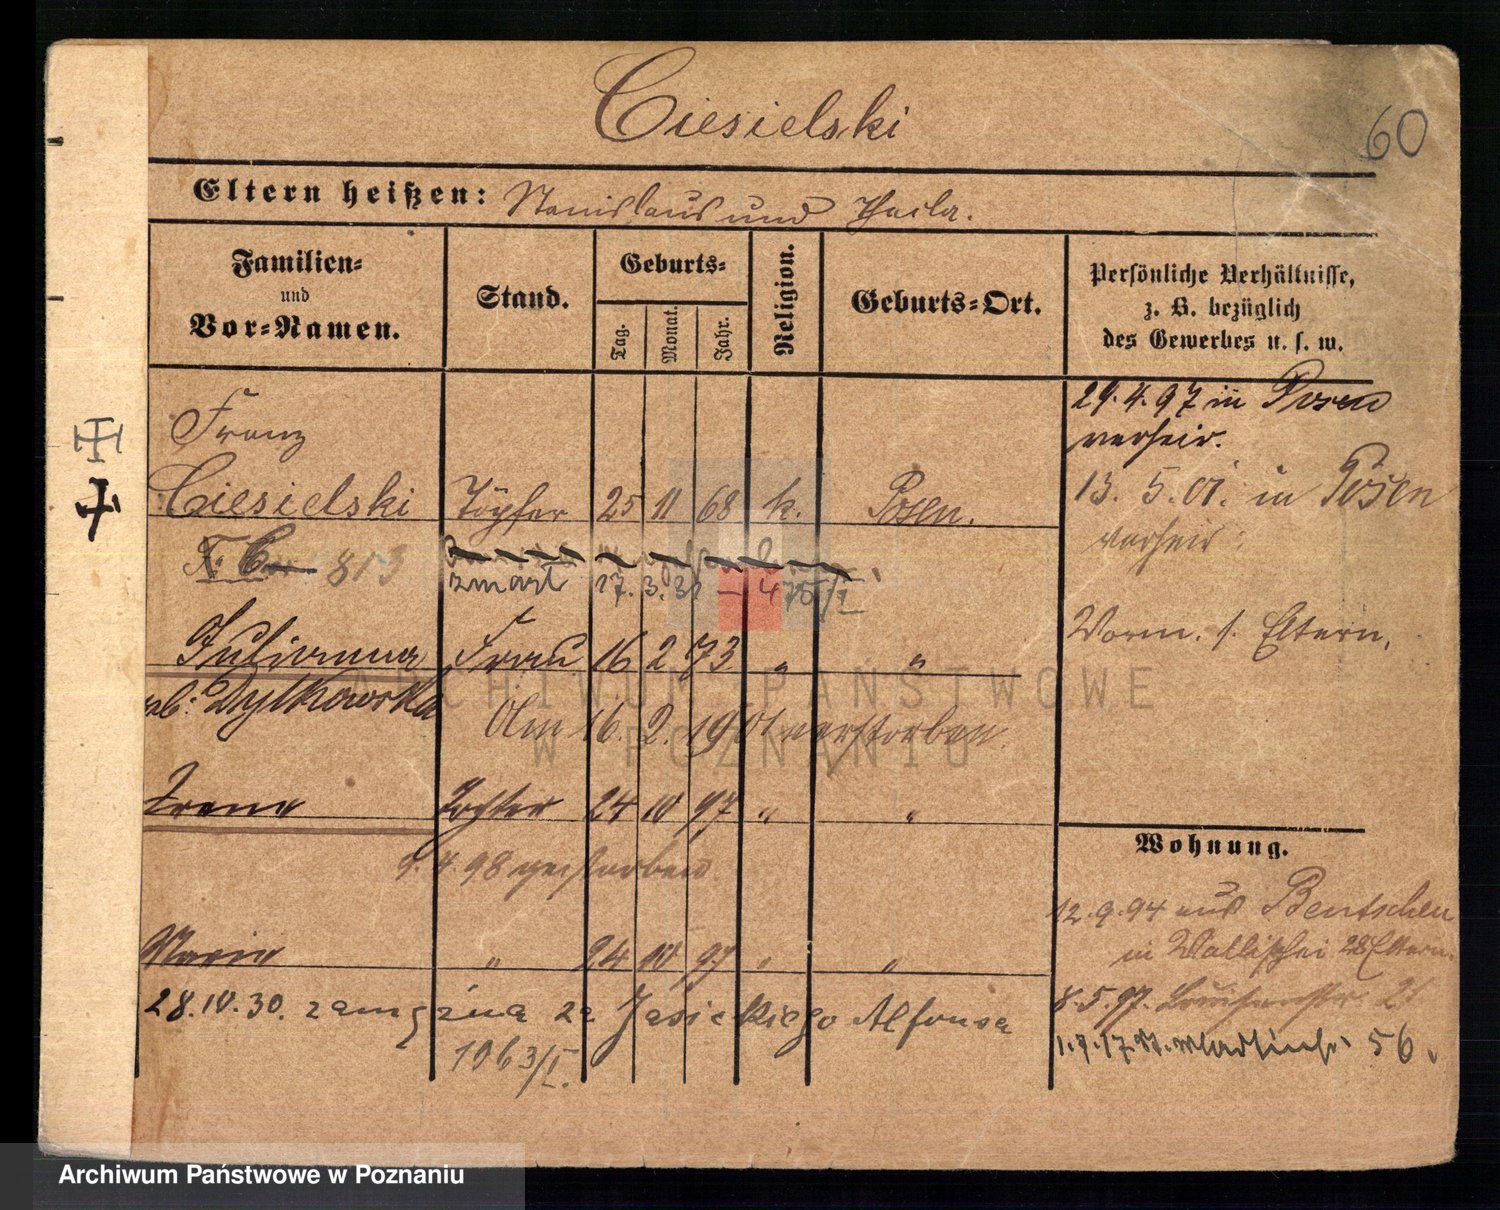 Ciesielski
60
Eltern heißen: Stanislaus und Thecla.
Familien- und Vor-Namen.
Stand.
Geburts-
Tag.
Monat.
Jahr.
Religion.
Geburts-Ort.
Persönliche Verhältnisse,
z. B. bezüglich
des Gewerbes u. s. w.
Franz
Ciesielski Töpfer 25 11 68 k. Posen.
813
zmarł 17. 3. 31 - 475/I
Julianna Frau 16 2 73 " "
Dytkowska
Am 16. 2. 1901 verstorben.
Irene Tochter 24 10 97 " "
9. 4. 98 gestorben
Maria " 24 10 97 " "
28.10.30. zamężna za Jasieckiego Alfonsa
1963/I.
29.4.97 in Posen
verheir.
13. 5. 01. in Posen
verheir.
Vorm. s. Eltern.
Wohnung.
12.9.94 aus Bentschen
in Wallischei 28 Eltern.
8.5.97. 21
1.4.17. St. Martinstr. 56.
ARCHIWUM PAŃSTWOWE
W POZNANIU
Archiwum Państwowe w Poznaniu